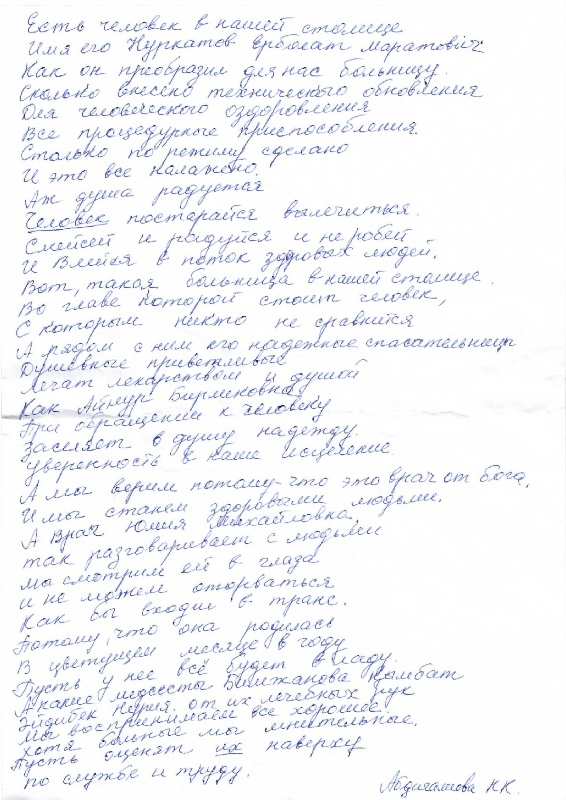 Есть человек в нашей столице
Имя его Нуркатов Ерболат Маратович
Как он преобразил для нас больницу.
Сколько внесено технического обновления
Для человеческого оздоровления
Все процедурные приспособления.
Столько по режиму сделано
И это все налажено.
Аж душа радуется
Человек постарайся вылечиться.
Смейсей и радуйся и не робей
И влейся в поток здоровых людей.
Вот, такая больница в нашей столице.
Во главе которой стоит человек,
С которым никто не сравнится
А рядом с ним его надежные спасательницы
Душевные приветливые
Лечат лекарством и душой
Как Айнур Бирликовна
При обращении к человеку
Заселяет в душу надежду.
уверенность в наше исцеление.
А мы верим потому-что это врач от бога,
И мы станем здоровыми людьми.
А Врач Юлия Михайловна,
так разговаривает с людьми
мы смотрим ей в глаза
и не можем оторваться
Как бы входим в транс.
Потому, что она родилась
В цветущем месяце в году
Пусть у нее всё будет в ладу.
А какие медсесты Камбат
Эйдибек Нурия. от их лечебных рук
Мы воспринимаем все хорошее
Хотя больные мы мнительные.
Пусть оценят их наверху
по службе и труду.
К.К.